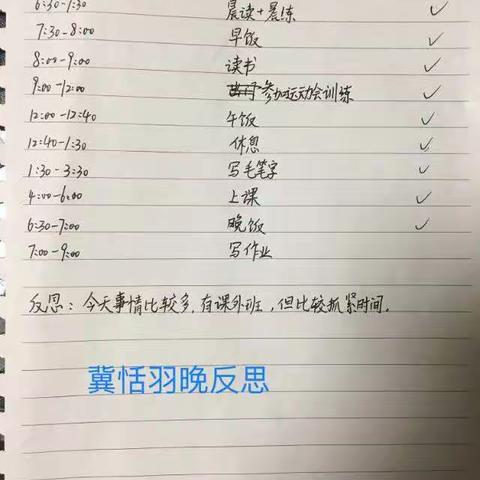 6:30-7:30 晨读+晨练 ✓
7:30-8:00 早饭 ✓
8:00-9:00 读书 ✓
9:00-12:00 参加运动会训练 ✓
12:00-12:40 午饭 ✓
12:40-1:30 休息 ✓
1:30-3:30 写毛笔字 ✓
4:00-6:00 上课 ✓
6:30-7:00 晚饭 ✓
7:00-9:00 写作业
反思:今天事情比较多,有课外班,但比较抓紧时间.
冀恬羽晚反思